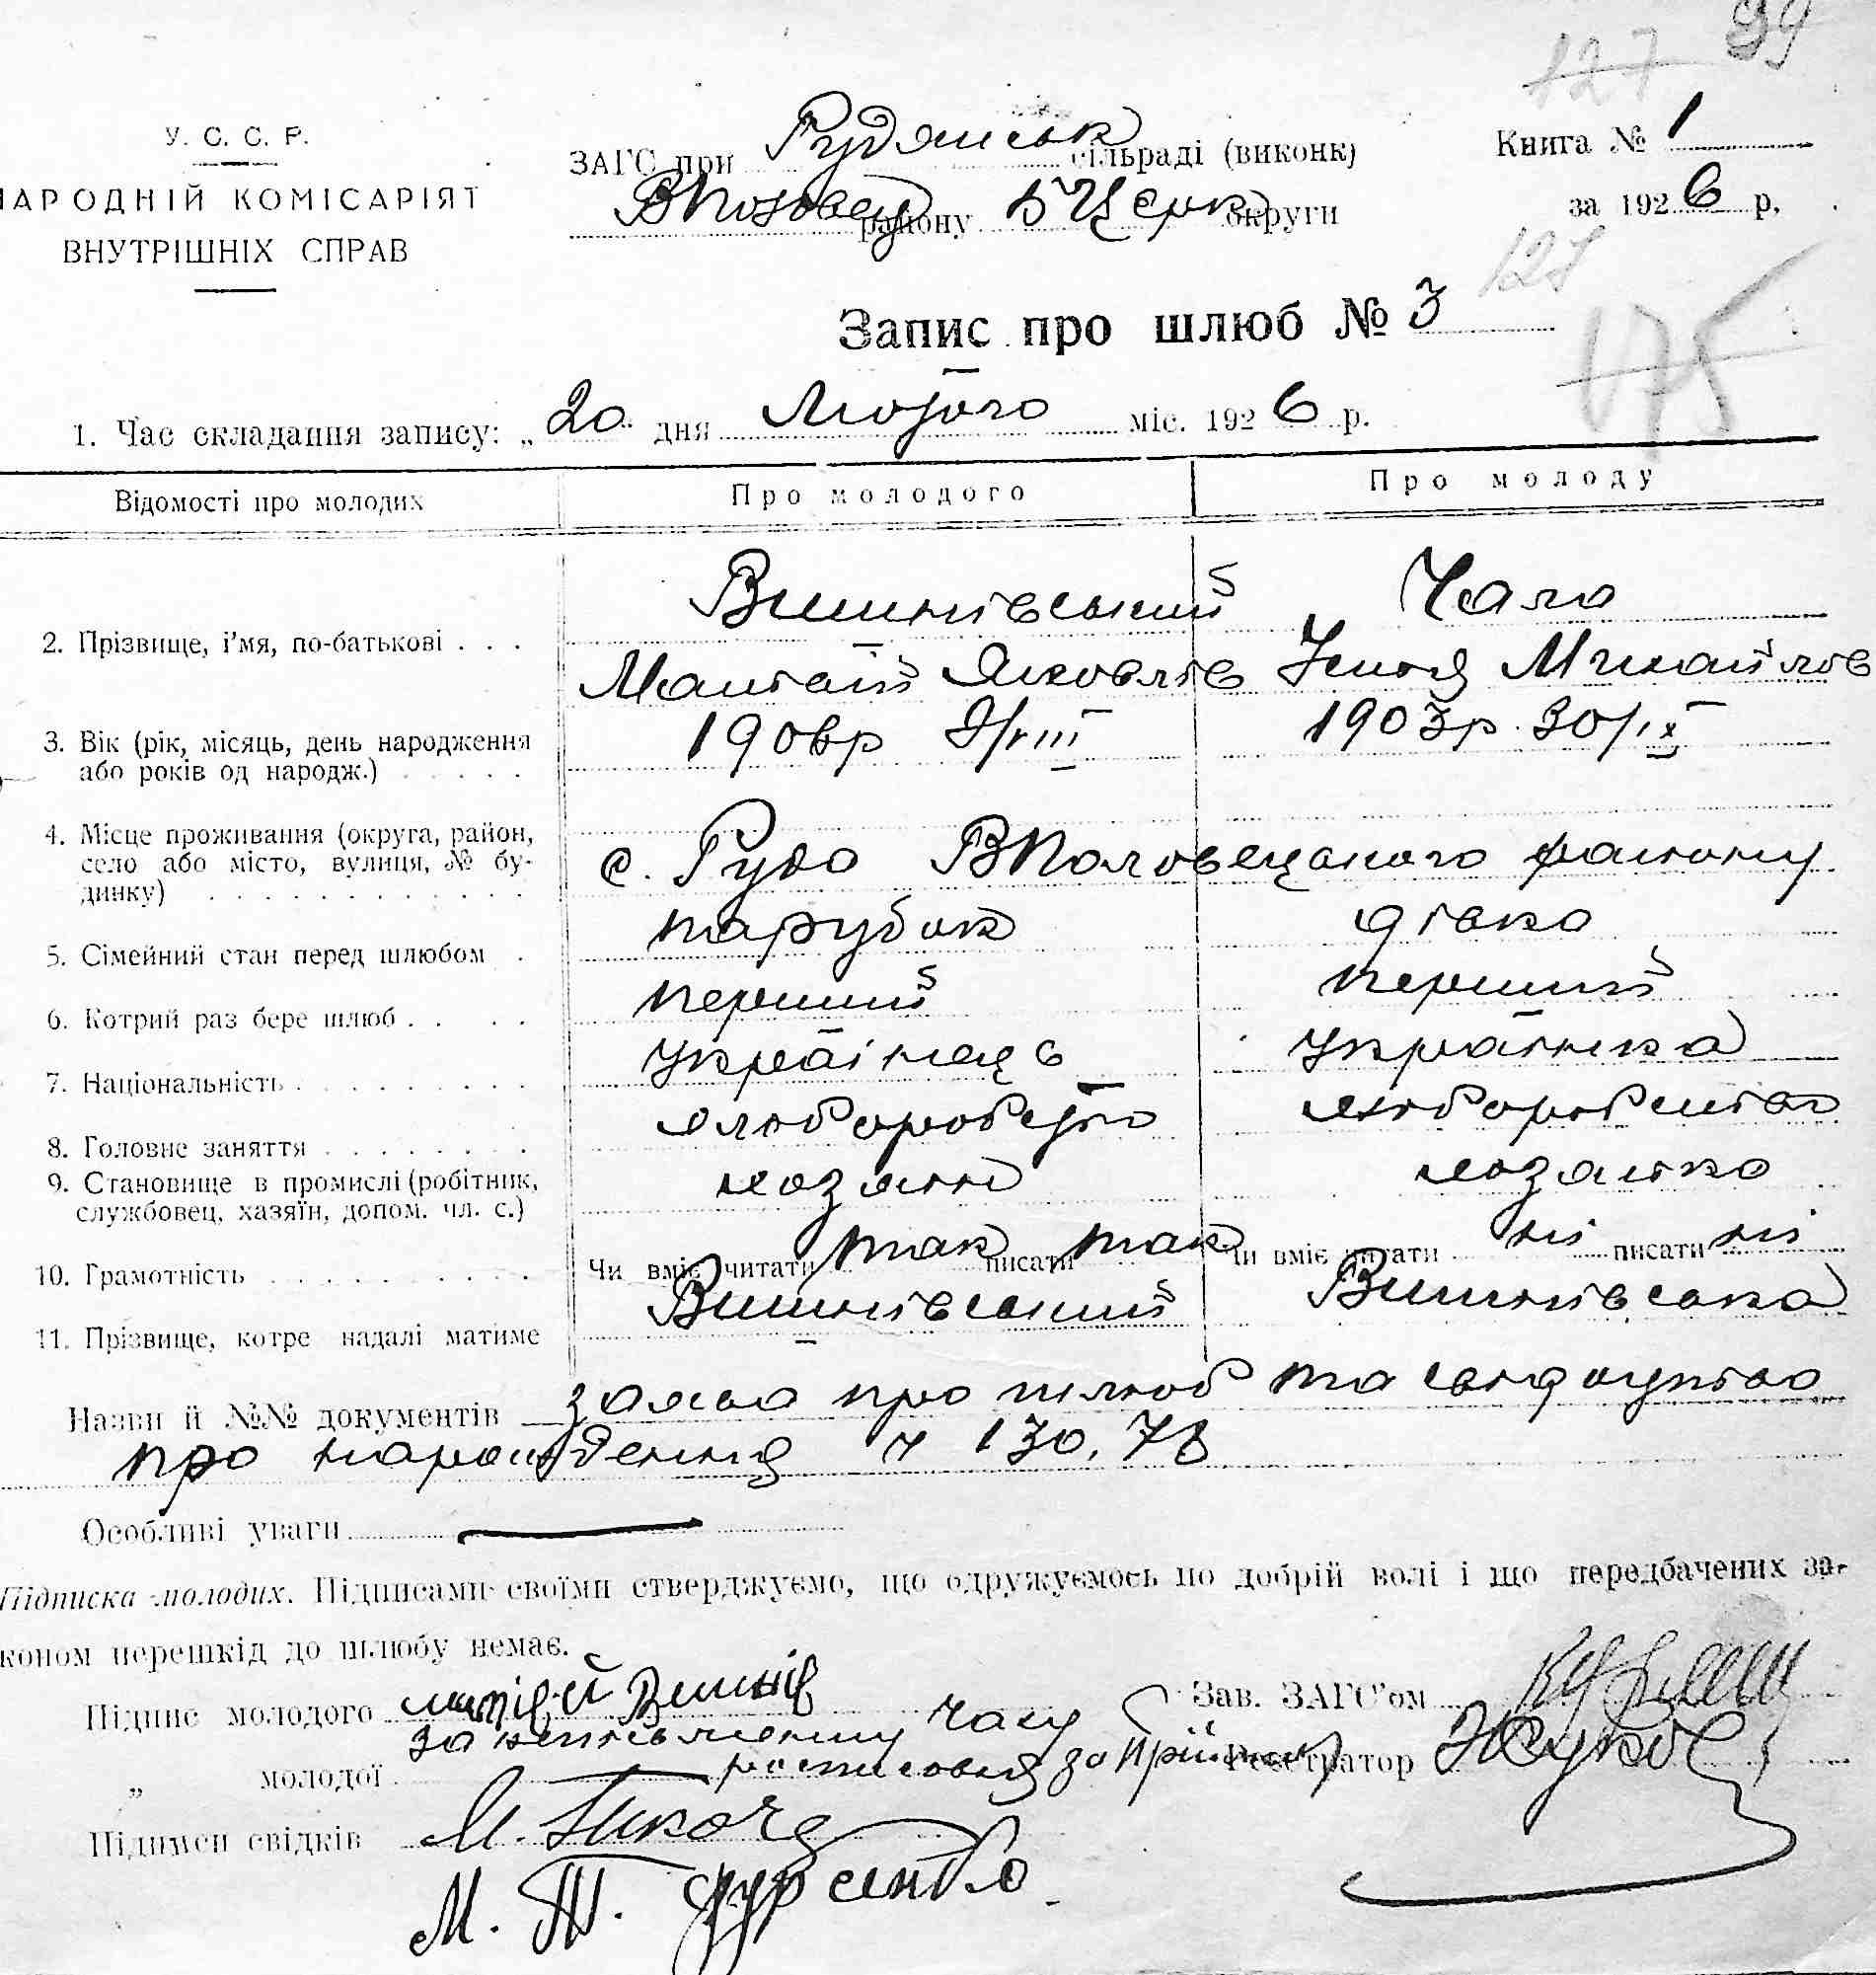 99
127
У. С. С. Р.
НАРОДНІЙ КОМІСАРІЯТ
ВНУТРІШНІХ СПРАВ
ЗАГС при Рудянськ сільраді (виконк)
ВПоловец району БЦерк округи
Книга № 1
за 1926 р.
127
Запис про шлюб № 3
175
1. Час складання запису: „20 дня Лютого міс. 1926 р.
Відомості про молодих Про молодого Про молоду
2. Прізвище, і'мя, по-батькові . . . Вишнівський Чала
Яковлів Михайлів
3. Вік (рік, місяць, день народження 1906р 9/VIII 1903р. 30/IX
або років од народж.) . . . . .
4. Місце проживання (округа, район,
село або місто, вулиця, № бу- с. Руда ВПоловецького району
динку) . . . . . . . . . . . .
5. Сімейний стан перед шлюбом . парубок дівка
6. Котрий раз бере шлюб . . . . перший перший
7. Національність . . . . . . . . . українець українка
8. Головне заняття . . . . . . . . хлібороб хлібороб
9. Становище в промислі (робітник, хозяин хозяйка
службовец, хазяїн, допом. чл. с.)
10. Грамотність . . . . . . . . . . Чи вміє читати так писати так Чи вміє читати ні писати ні
11. Прізвище, котре надалі матиме Вишнівський Вишнівська
Назви й №№ документів заява про шлюб та свідоцтво
про народження ч 130, 78
Особливі уваги
Підписка молодих. Підписами своїми стверджуємо, що одружуємось по добрій волі і що передбачених за-
коном перешкід до шлюбу немає.
Підпис молодого Вишнів Зав. ЗАГС'ом
за часу
„ молодої росписовся за Реєстратор Жуков
Підписи свідків М. Ткач
М. Т.